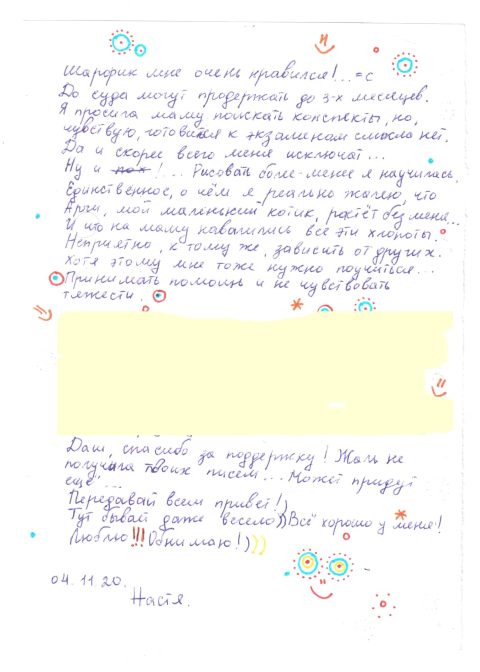 Шарфик мне очень нравился!.. =с
До суда могут продержать до 3-х месяцев.
Я просила маму поискать конспекты, но,
чувствую, готовится к экзаменам смысла нет.
Да и скорее всего меня исключат...
Ну и !... Рисовать более-менее я научилась.
Единственное, о чём я реально жалею, что
Арчи, мой маленький котик, растёт без меня...
И что на маму навалились все эти хлопоты.
Неприятно, к тому же, зависить от других.
Хотя этому мне тоже нужно поучиться...
Принимать помощь и не чувствовать
тяжести.
Даш, спасибо за поддержку! Жаль не
получила твоих писем... Может придут
ещё...
Передавай всем привет!)
Тут бывает даже весело)) Всё хорошо у меня!
Люблю!!! Обнимаю!)))
04.11.20.
Настя.